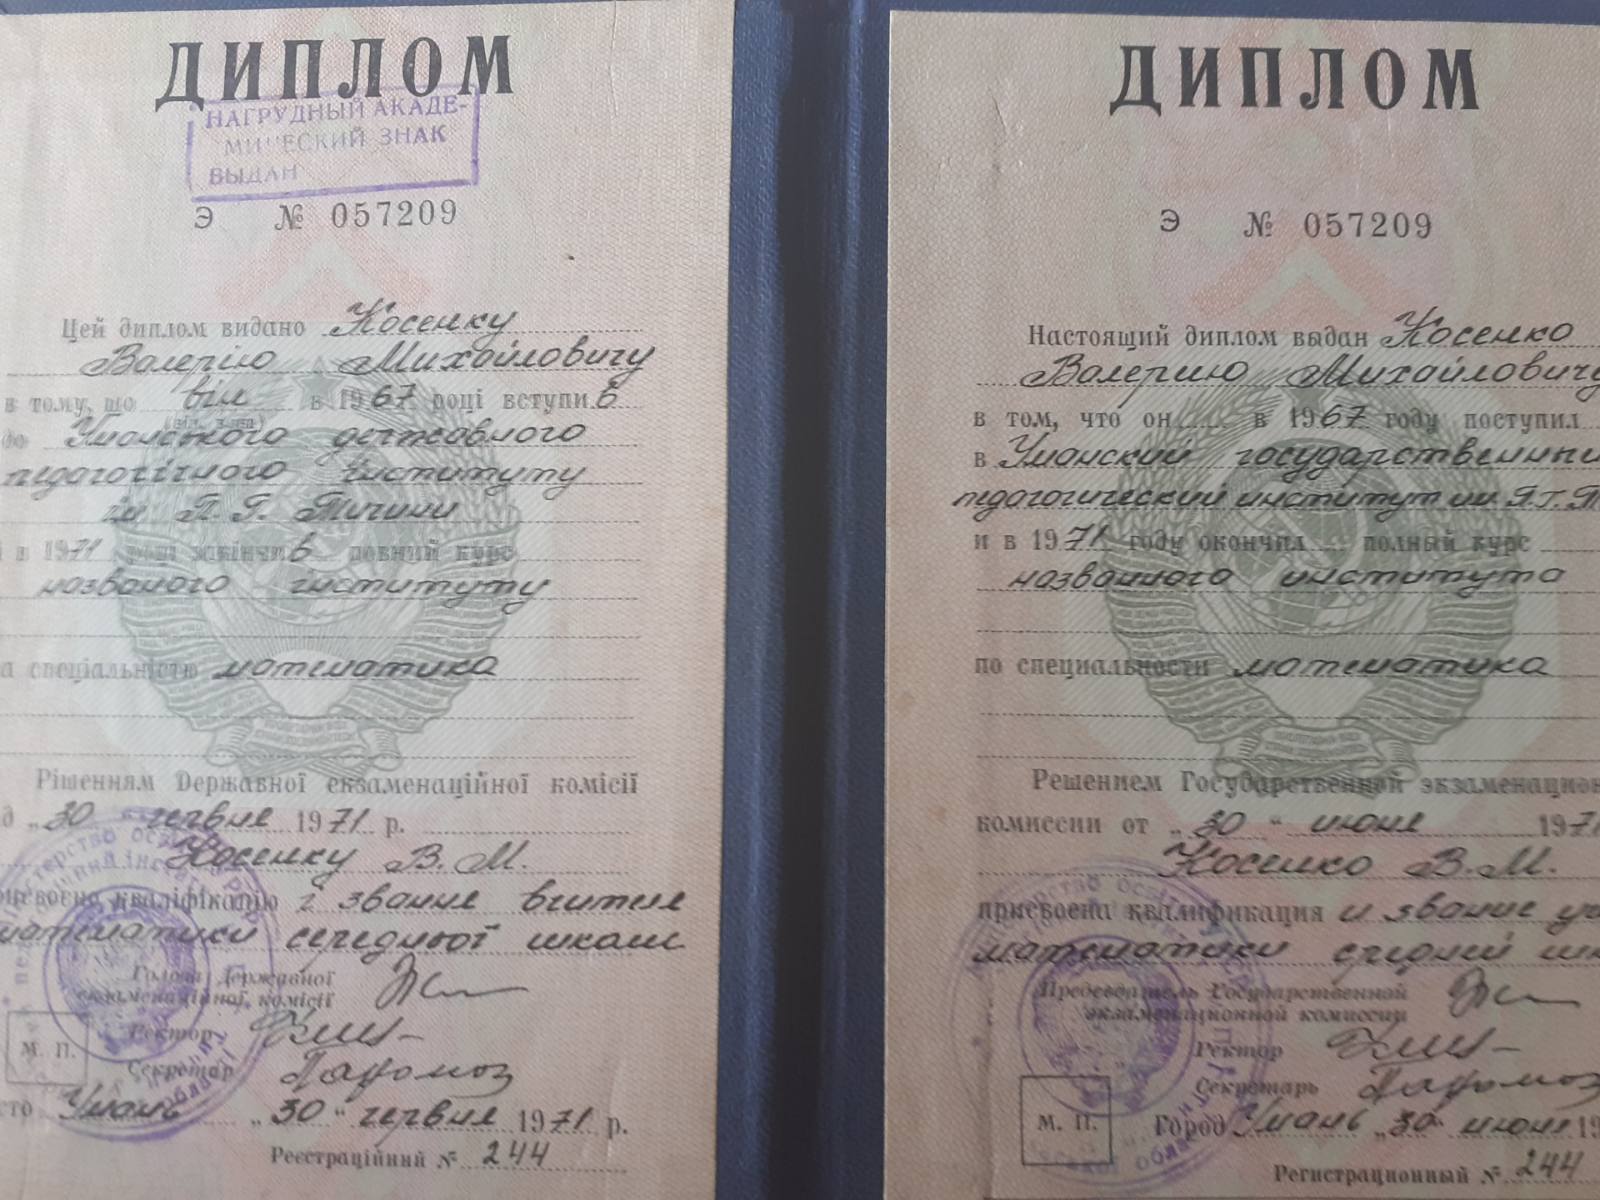 ДИПЛОМ
НАГРУДНЫЙ АКАДЕ-
МИЧЕСКИЙ ЗНАК
ВЫДАН
Э № 057209
Цей диплом видано Косенку
Валерію Михайловичу
в тому, що він в 1967 році вступив
до Уманського державного
педагогічного інституту
ім П. Г. Тичини
і в 1971 році закінчив повний курс
названого інституту
за спеціальністю математика
Рішенням Державної екзаменаційної комісії
від „30 червня 1971 р.
Косенку В. М.
присвоєно кваліфікацію і звання вчителя
математики середньої школи
Голова Державної
екзаменаційної комісії
Ректор
М. П.
Секретар
Місто Умань „30“ червня 1971 р.
Реєстраційний № 244
ДИПЛОМ
Э № 057209
Настоящий диплом выдан Косенко
Валерию Михайловичу
в том, что он в 1967 году поступил
в Уманский государственный
педагогический институт им. П. Г. Т
и в 1971 году окончил полный курс
названного института
по специальности математика
Решением Государственной экзаменацион
комиссии от „30“ июня 1971
Косенко В. М.
присвоена квалификация и звание уч
математики средней шк
Председатель Государственной
экзаменационной комиссии
Ректор
Секретарь
М. П.
Город Умань „30“ июня 19
Регистрационный № 244